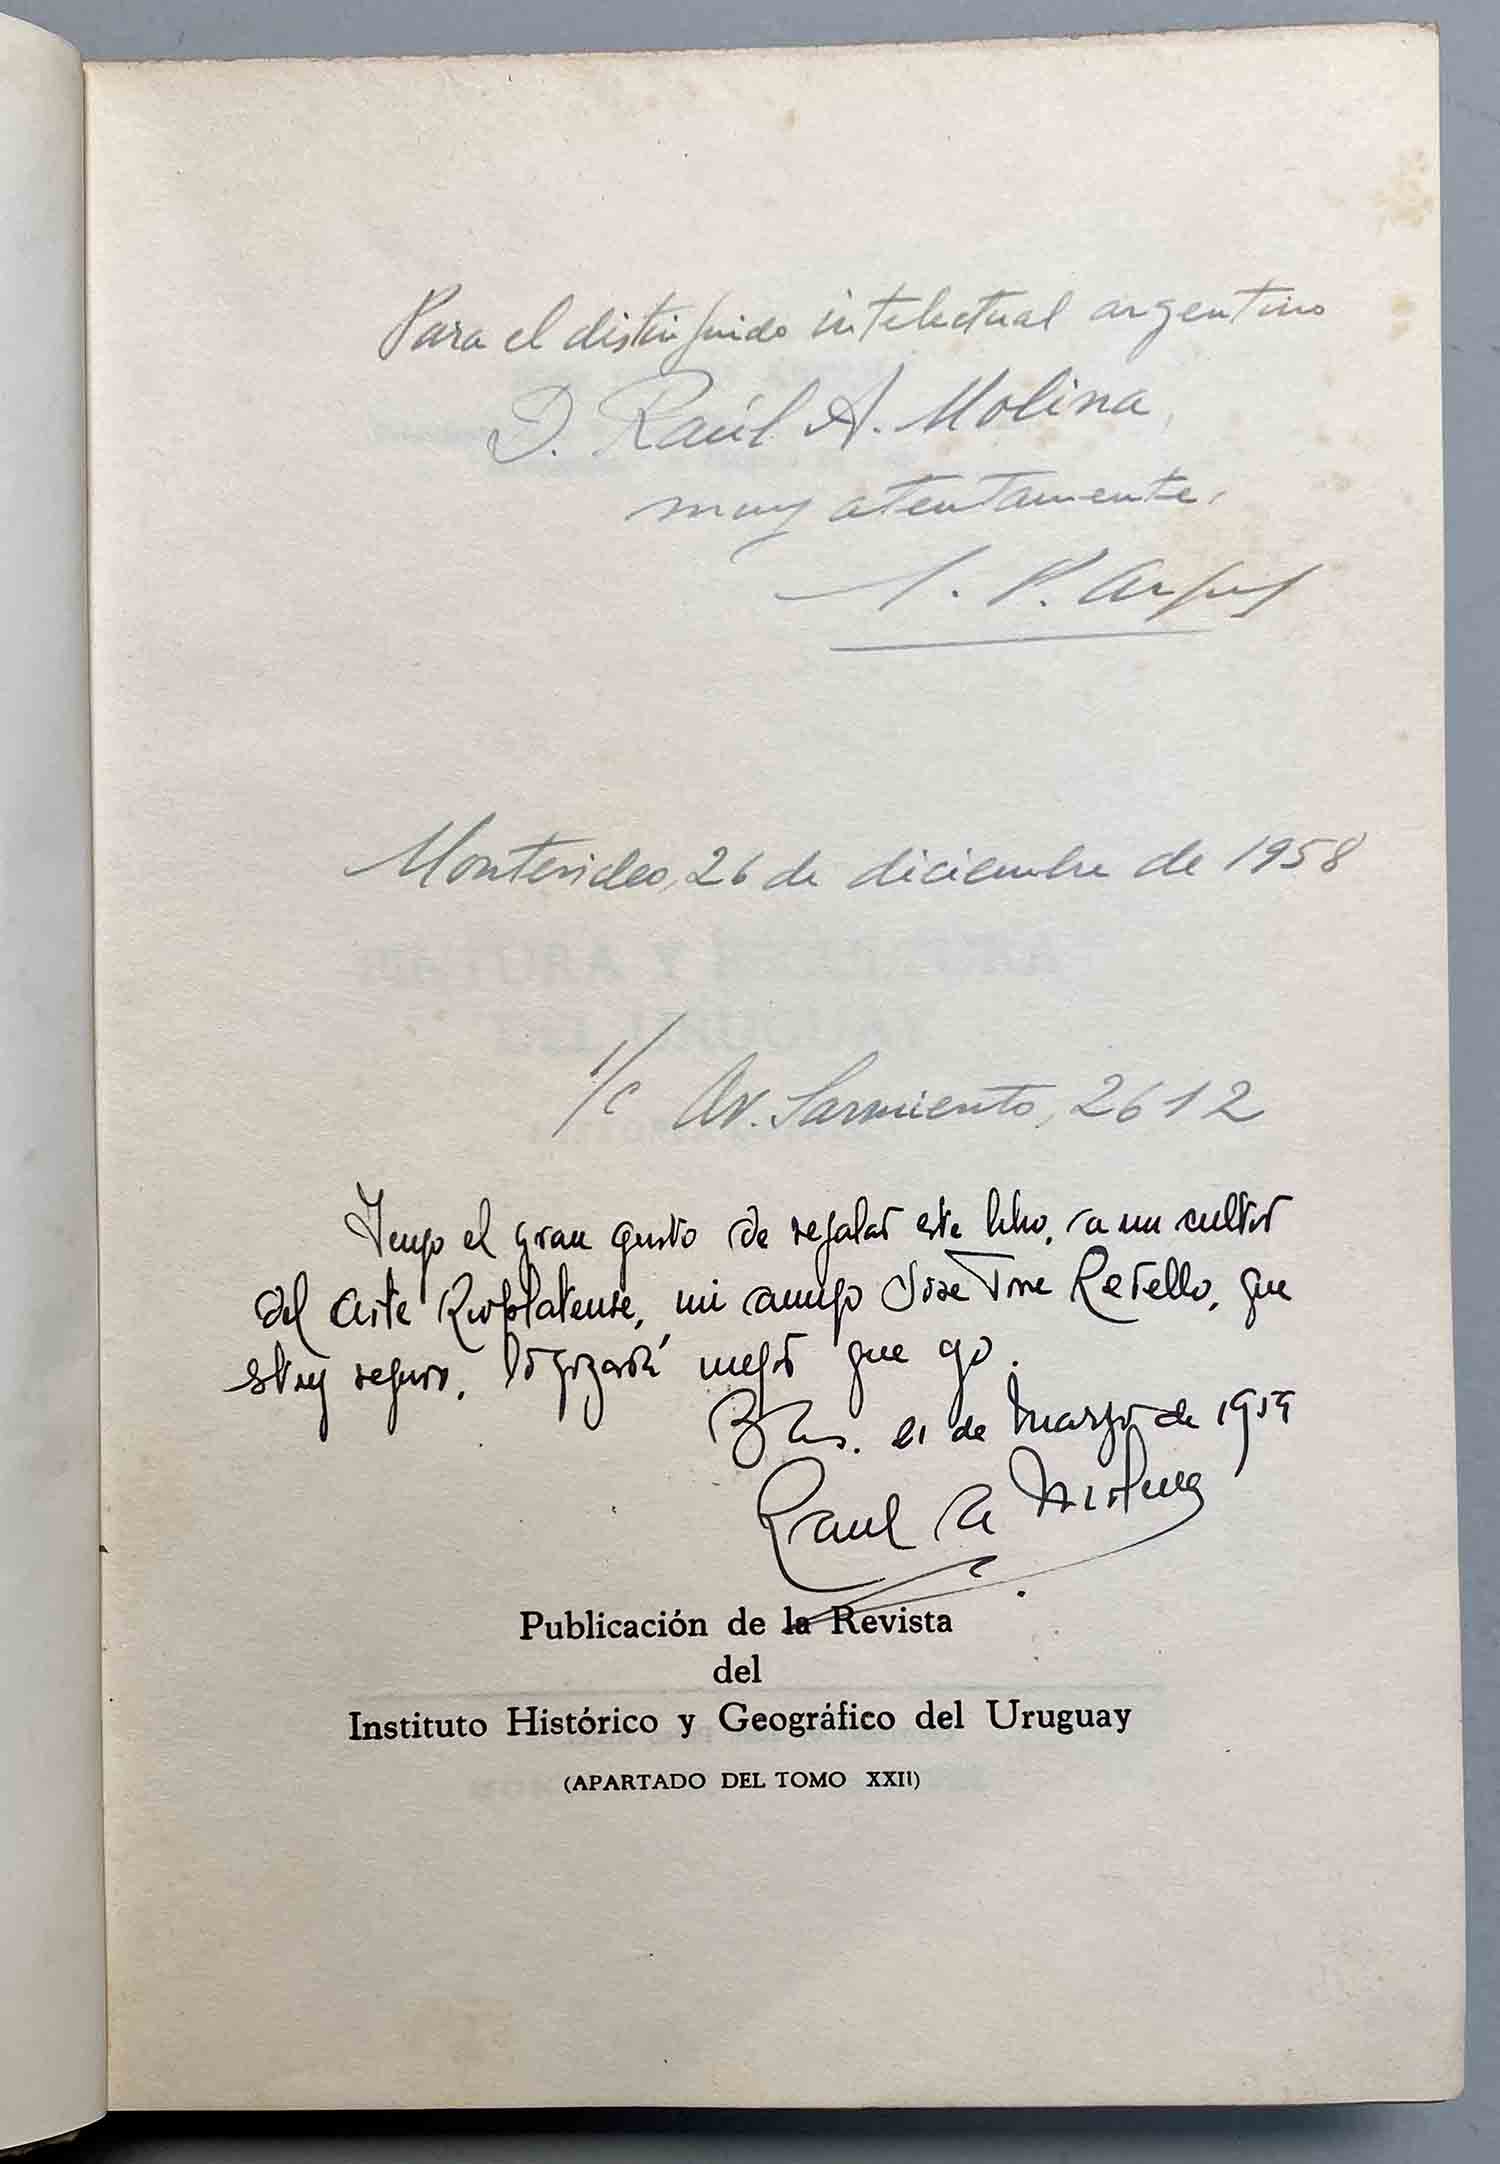 Para el distinguido intelectual argentino
D. Raúl A. Molina,
muy atentamente,
Montevideo, 26 de diciembre de 1958
PINTURA Y ESCULTURA
DEL URUGUAY
s/c Av. Sarmiento, 2612
Tengo el gran gusto de regalar este libro, a un cultor
del arte Rioplatense, mi amigo José Torre Revello, que
estoy seguro, lo gozará mejor que yo.
Bs As. 21 de Marzo de 1959
Raul A Molina
Publicación de la Revista
del
Instituto Histórico y Geográfico del Uruguay
(APARTADO DEL TOMO XXII)